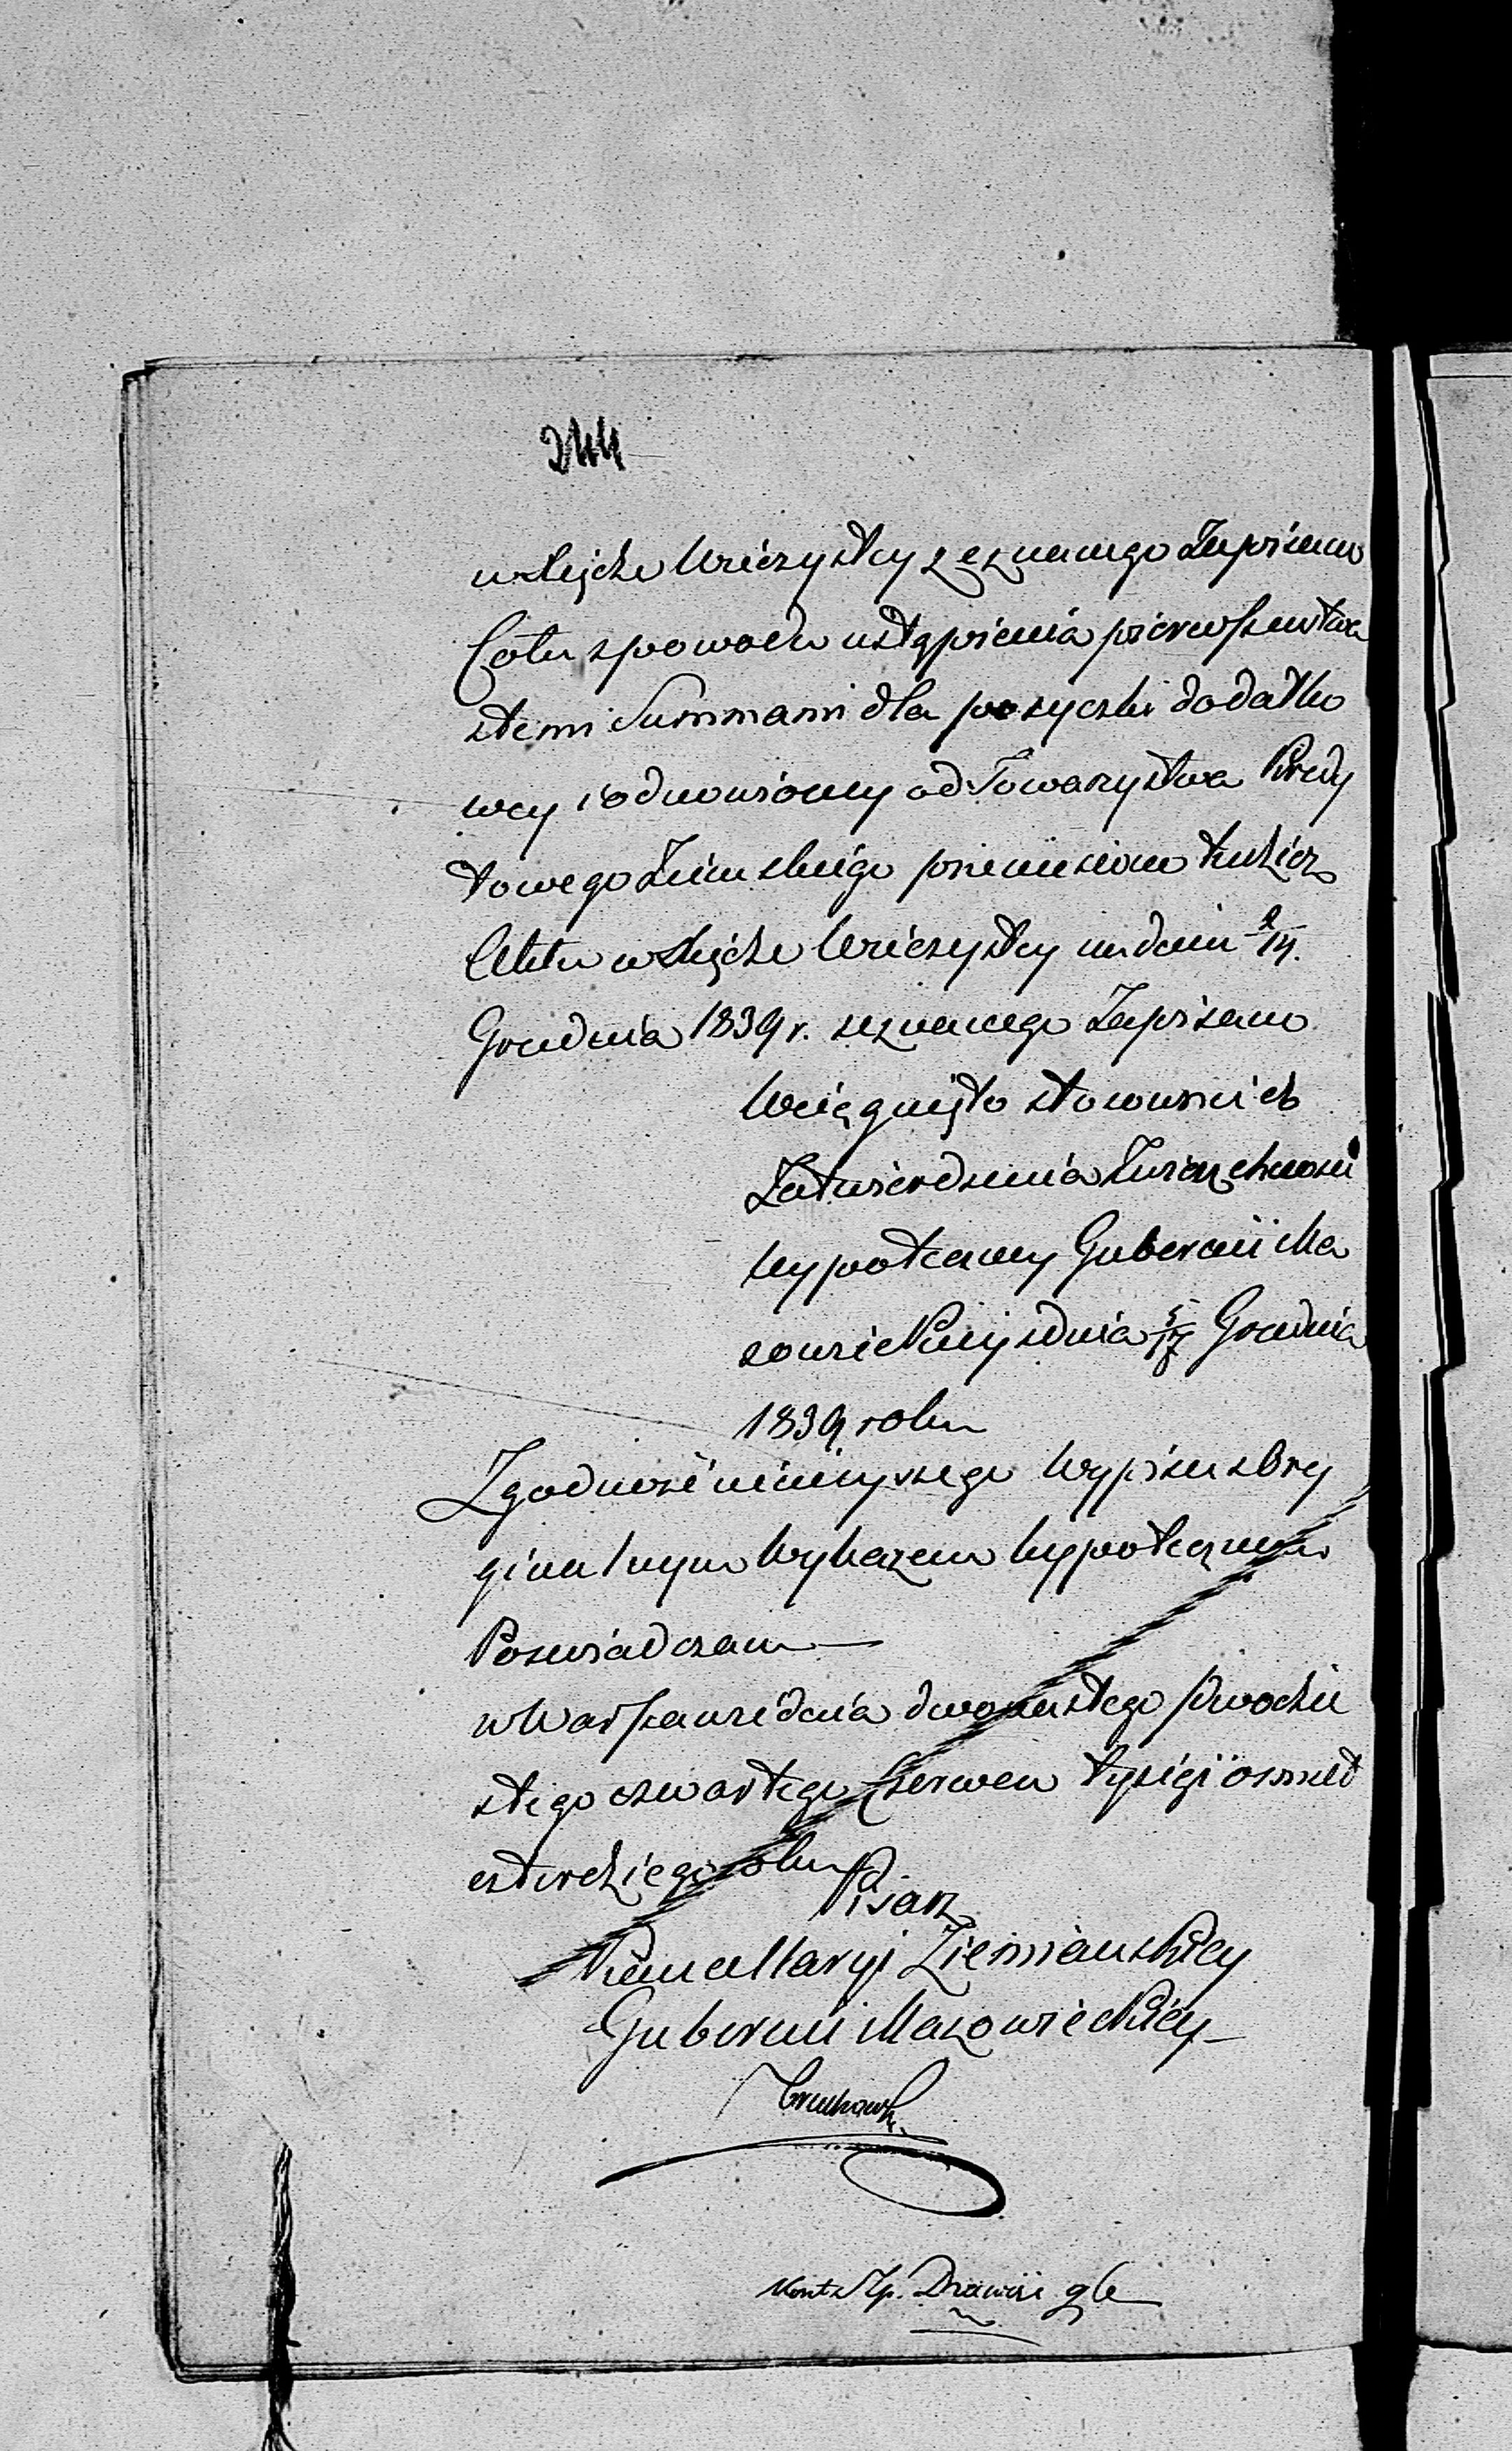 244
w Księdze Wieczystey zeznanego Zapisano
Cotu z powodu ustąpienia pierwszenstwa
z temi Summami dla pozyczki dodatko
wey i odnowioney od Towarzystwa Kredy
towego Ziemskiego przeniesiono tudzież
Aktu w Księdze Wieczystey na dniu 2/14.
Grudnia 1839 r. zeznanego Zapisano
Wciągnięto stosownie do
Zatwierdzenia Zwierzchnosci
hypoteczney Gubernii Ma
zowieckiey z dnia 5/17 Grudnia
1839 roku
Zgodność ninieyszego Wypisu z Ory
ginalnym Wykazem hypotecznym
Poswiadczam —
w Warszawie dnia dwunastego / dwodzie
stego czwartego Czerwca tysiąc osmset
czterdziego roku
Pisarz
Kancellaryi Ziemianskiey
Gubernii Mazowieckiey